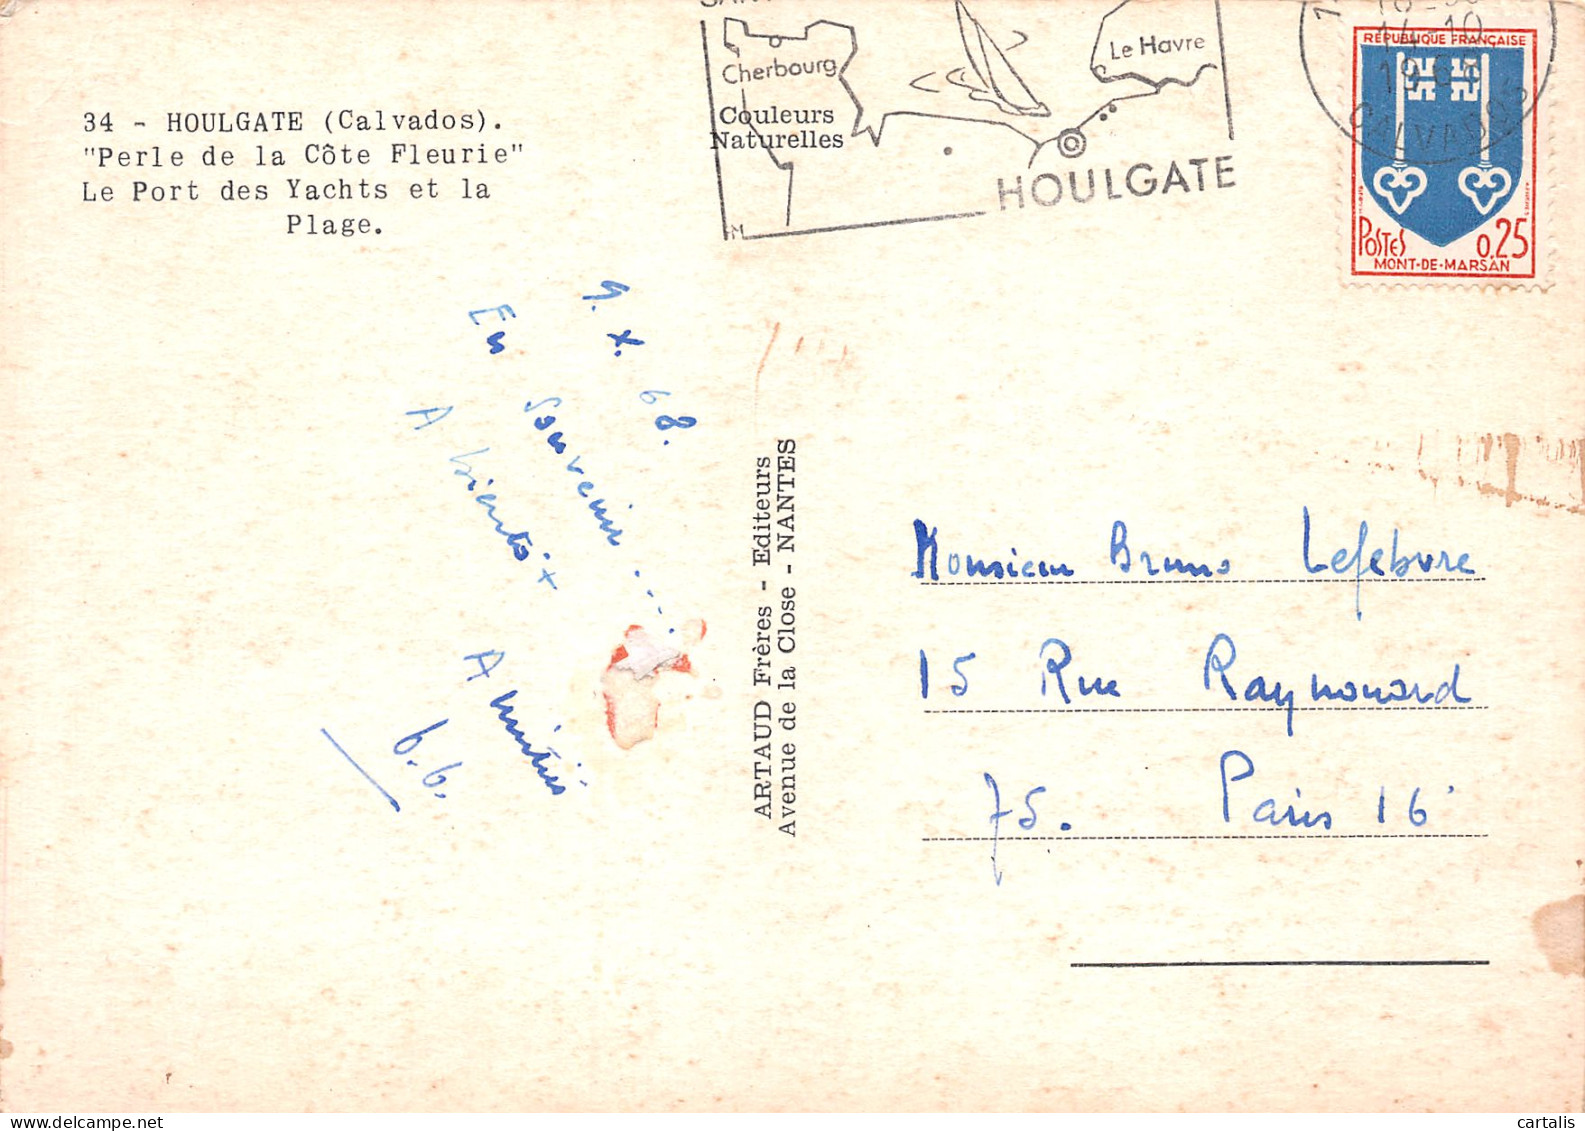 34 - HOULGATE (Calvados).
"Perle de la Côte Fleurie"
Le Port des Yachts et la
Plage.
Cherbourg
Le Havre
HOULGATE
Couleurs
Naturelles
14-10
1968
CALVADOS
RÉPUBLIQUE FRANÇAISE
POSTES 0,25
MONT-DE-MARSAN
9.x.68.
En Souvenir.....
A bientôt
Amitiés
b.b.
ARTAUD Frères - Editeurs
Avenue de la Close - NANTES
Monsieur Bruno Lefebvre
15 Rue Raynouard
75. Paris 16
cartalis